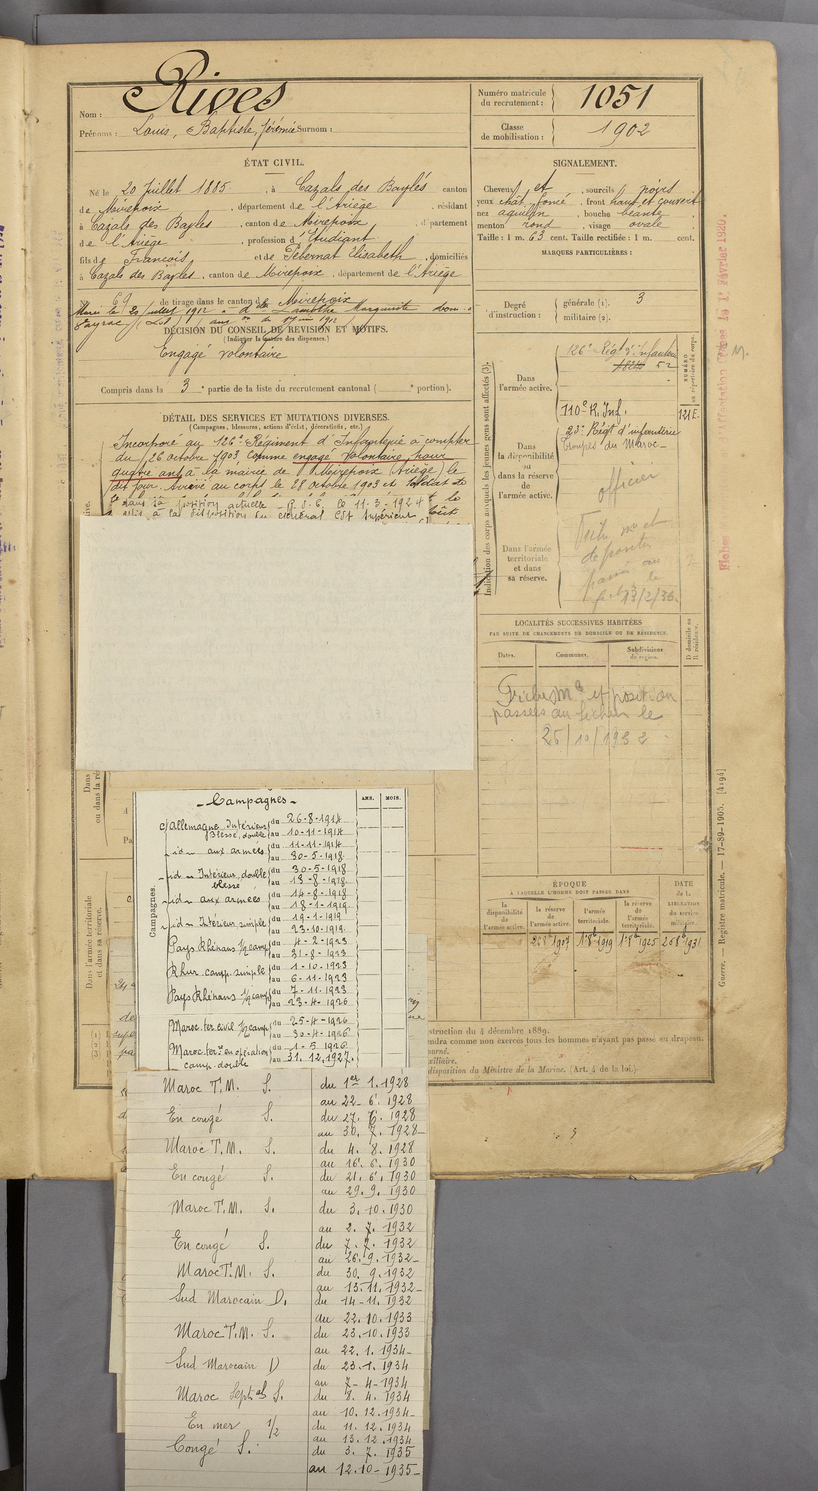 Nom : Rives
Prénoms : Louis, Baptiste, Jérémie Surnom :
Numéro matricule du recrutement : 1051
Classe de mobilisation : 1902
ÉTAT CIVIL.
Né le 20 Juillet 1885, à Cazals des Bayles canton
de Mirepoix, département de l'Ariège, résidant
à Cazals des Bayles, canton de Mirepoix, département
de l'Ariège, profession d'Etudiant
fils de François, et de Pébernat Elisabeth, domiciliés
à Cazals des Bayles, canton de Mirepoix, département de l'Ariège
SIGNALEMENT.
Cheveux et sourcils noirs
yeux chat. foncé, front haut et couvert
nez aquilin, bouche béante
menton rond, visage ovale
Taille : 1 m. 63 cent. Taille rectifiée : 1 m. cent.
MARQUES PARTICULIÈRES :
69 de tirage dans le canton de Mirepoix
Marié le 20 juillet 1912 à d'lle Lamothe Marguerite
Payrac (Lot)
DÉCISION DU CONSEIL DE REVISION ET MOTIFS.
(Indiquer la nature des dispenses.)
Engagé volontaire
Compris dans la 3e partie de la liste du recrutement cantonal ( portion).
Degré d'instruction :
générale (1). 3
militaire (2).
DÉTAIL DES SERVICES ET MUTATIONS DIVERSES.
(Campagnes, blessures, actions d'éclat, décorations, etc.)
Incorporé au 126e Régiment d'Infanterie à compter
du 26 octobre 1903 comme engagé volontaire pour
quatre ans à la mairie de Mirepoix (Ariège) le
dit jour. Arrivé au corps le 28 octobre 1903 et soldat de
dans sa position actuelle P.S.C. le 11-3-1924
Indication des corps auxquels les jeunes gens sont affectés (3).
NUMÉRO au répertoire du corps.
Dans l'armée active.
126e Régt d'infanterie
110e R. Inf.
131E
Dans la disponibilité ou dans la réserve de l'armée active.
23e Régt d'infanterie
Troupes du Maroc
officier
Dans l'armée territoriale et dans sa réserve.
13/2/36
LOCALITÉS SUCCESSIVES HABITÉES
PAR SUITE DE CHANGEMENTS DE DOMICILE OU DE RÉSIDENCE.
Dates.
Communes.
Subdivisions de région.
D domicile ou R résidence.
et position
passées au fichier le
25/10/1932
ÉPOQUE
À LAQUELLE L'HOMME DOIT PASSER DANS
la disponibilité de l'armée active.
la réserve de l'armée active.
l'armée territoriale.
la réserve de l'armée territoriale.
DATE de la LIBÉRATION du service militaire.
26 8bre 1907
1er 8bre 1919
1er 8bre 1925
26 8bre 1931
struction du 4 décembre 1889.
endra comme non exercés tous les hommes n'ayant pas passé au drapeau.
ourné.
xiliaire.
disposition du Ministre de la Marine. (Art. 4 de la loi.)
Guerre. — Registre matricule. — 17-89-1905. [4194]
Campagnes
ANS. MOIS.
Campagnes.
c/ Allemagne Intérieur Blessé, double du 26-8-1914
au 10-11-1914
-id- aux armées du 11-11-1914
au 30-5-1918
-id- Intérieur double blessé du 30-5-1918
au 13-8-1918
-id- aux armées du 14-8-1918
au 18-1-1919
-id- Intérieur simple du 19-1-1919
au 23-10-1919
Pays Rhénans 1/2 camp du 4-2-1923
au 31-8-1923
Rhur camp. simple du 1-10-1923
au 6-11-1923
Pays Rhénans 1/2 camp du 7-11-1923
au 23-4-1926
Maroc. ter civil 1/2 camp du 25-4-1926
au 30-4-1926
Maroc. ter.re en opération camp. double du 1-5-1926
au 31.12.1927.
Maroc T.M. S. du 1er 1. 1928
au 22. 6. 1928
En congé S. du 27. 6. 1928
au 30. 7. 1928
Maroc T.M. S. du 4. 8. 1928
au 16. 6. 1930
En congé S. du 21. 6. 1930
au 29. 9. 1930
Maroc T.M. S. du 3. 10. 1930
au 2. 7. 1932
En congé S. du 7. 7. 1932
au 26. 9. 1932
Maroc T.M. S. du 30. 9. 1932
au 13. 11. 1932
Sud Marocain D. du 14-11. 1932
au 22. 10. 1933
Maroc T.M. S. du 23. 10. 1933
au 22. 1. 1934
Sud Marocain D du 23. 1. 1934
au 7-4-1934
Maroc Septal S. du 8. 4. 1934
au 10. 12. 1934
En mer 1/2 du 11. 12. 1934
au 13. 12. 1934
Congé S. du 3. 7. 1935
au 12.10-1935